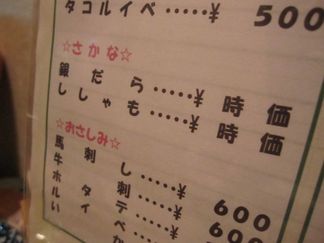 タコルイベ·····¥ 500
☆さかな☆
銀だら·····¥ 時価
ししゃも·····¥ 時価
☆おさしみ☆
馬刺し·····¥ 600
牛刺·····¥ 600
ホタテ·····¥
ルイベ
いか